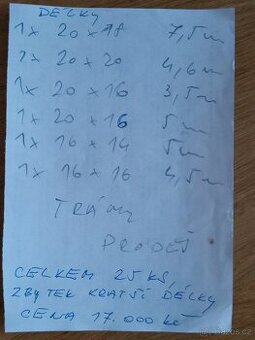 DÉLKY
1x 20 x 18 7,5m
1x 20 x 20 4,6m
1x 20 x 16 3,5m
1x 20 x 16 5m
1x 16 x 14 5m
1x 16 x 16 4,5m
TRÁMY
PRODEJ
CELKEM 25 KS,
ZBYTEK KRATŠÍ DÉLKY
CENA 17.000 KČ